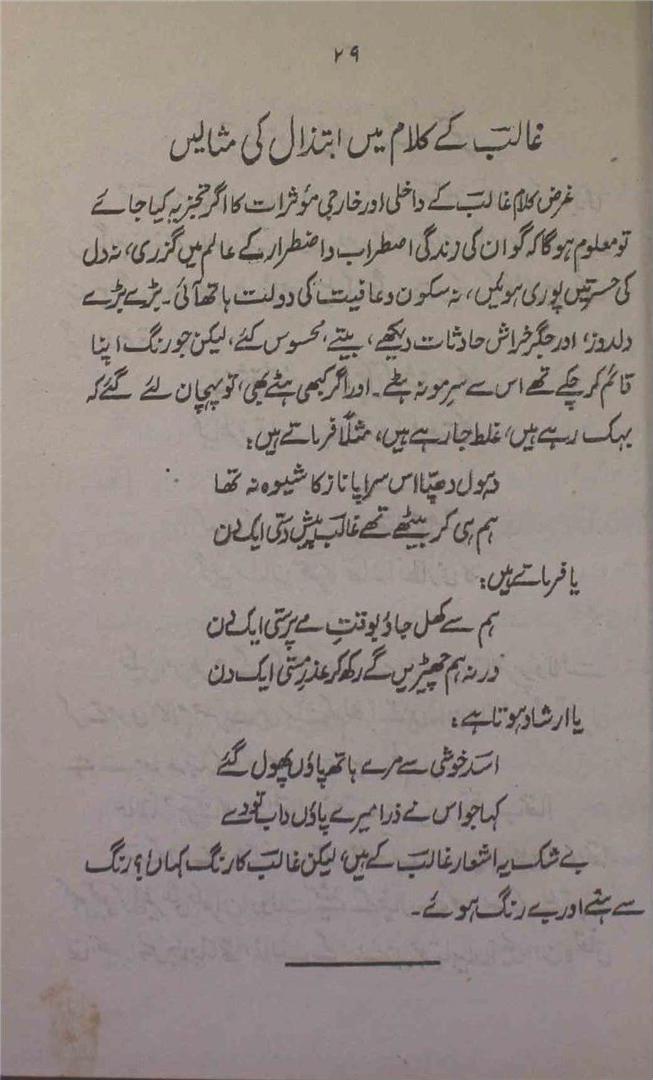 ۲۹
غالبؔ کے کلام میں ابتذال کی مثالیں
غرض کلام غالبؔ کے داخلی اور خارجی مؤثرات کا اگر تجزیہ کیا جائے
تو معلوم ہوگا کہ گو ان کی زندگی اضطراب و اضطرار کے عالم میں گزری، نہ دل
کی حسرتیں پوری ہوئیں، نہ سکون و عافیت کی دولت ہاتھ آئی۔ بڑے بڑے
دلدوز، اور جگر خراش حادثات دیکھے، بیتے، محسوس کئے، لیکن جو رنگ اپنا
قائم کر چکے تھے اس سے سرِ مو نہ ہٹے۔ اور اگر کبھی ہٹے بھی، تو پہچان لئے گئے کہ
بہک رہے ہیں، غلط جا رہے ہیں، مثلاً فرماتے ہیں:
دہول دھپّا اس سراپا ناز کا شیوہ نہ تھا
ہم ہی کر بیٹھے تھے غالبؔ پیش دستی ایک دن
یا فرماتے ہیں:
ہم سے کھل جاؤ بوقتِ مے پرستی ایک دن
ورنہ ہم چھیڑیں گے رکھ کر عذرِ مستی ایک دن
یا ارشاد ہوتا ہے:
اسدؔ خوشی سے مرے ہاتھ پاؤں پھول گئے
کہا جو اس نے ذرا میرے پاؤں داب تو دے
بے شک یہ اشعار غالبؔ کے ہیں، لیکن غالبؔ کا رنگ کہاں؟ رنگ
سے ہٹے اور بے رنگ ہوئے۔